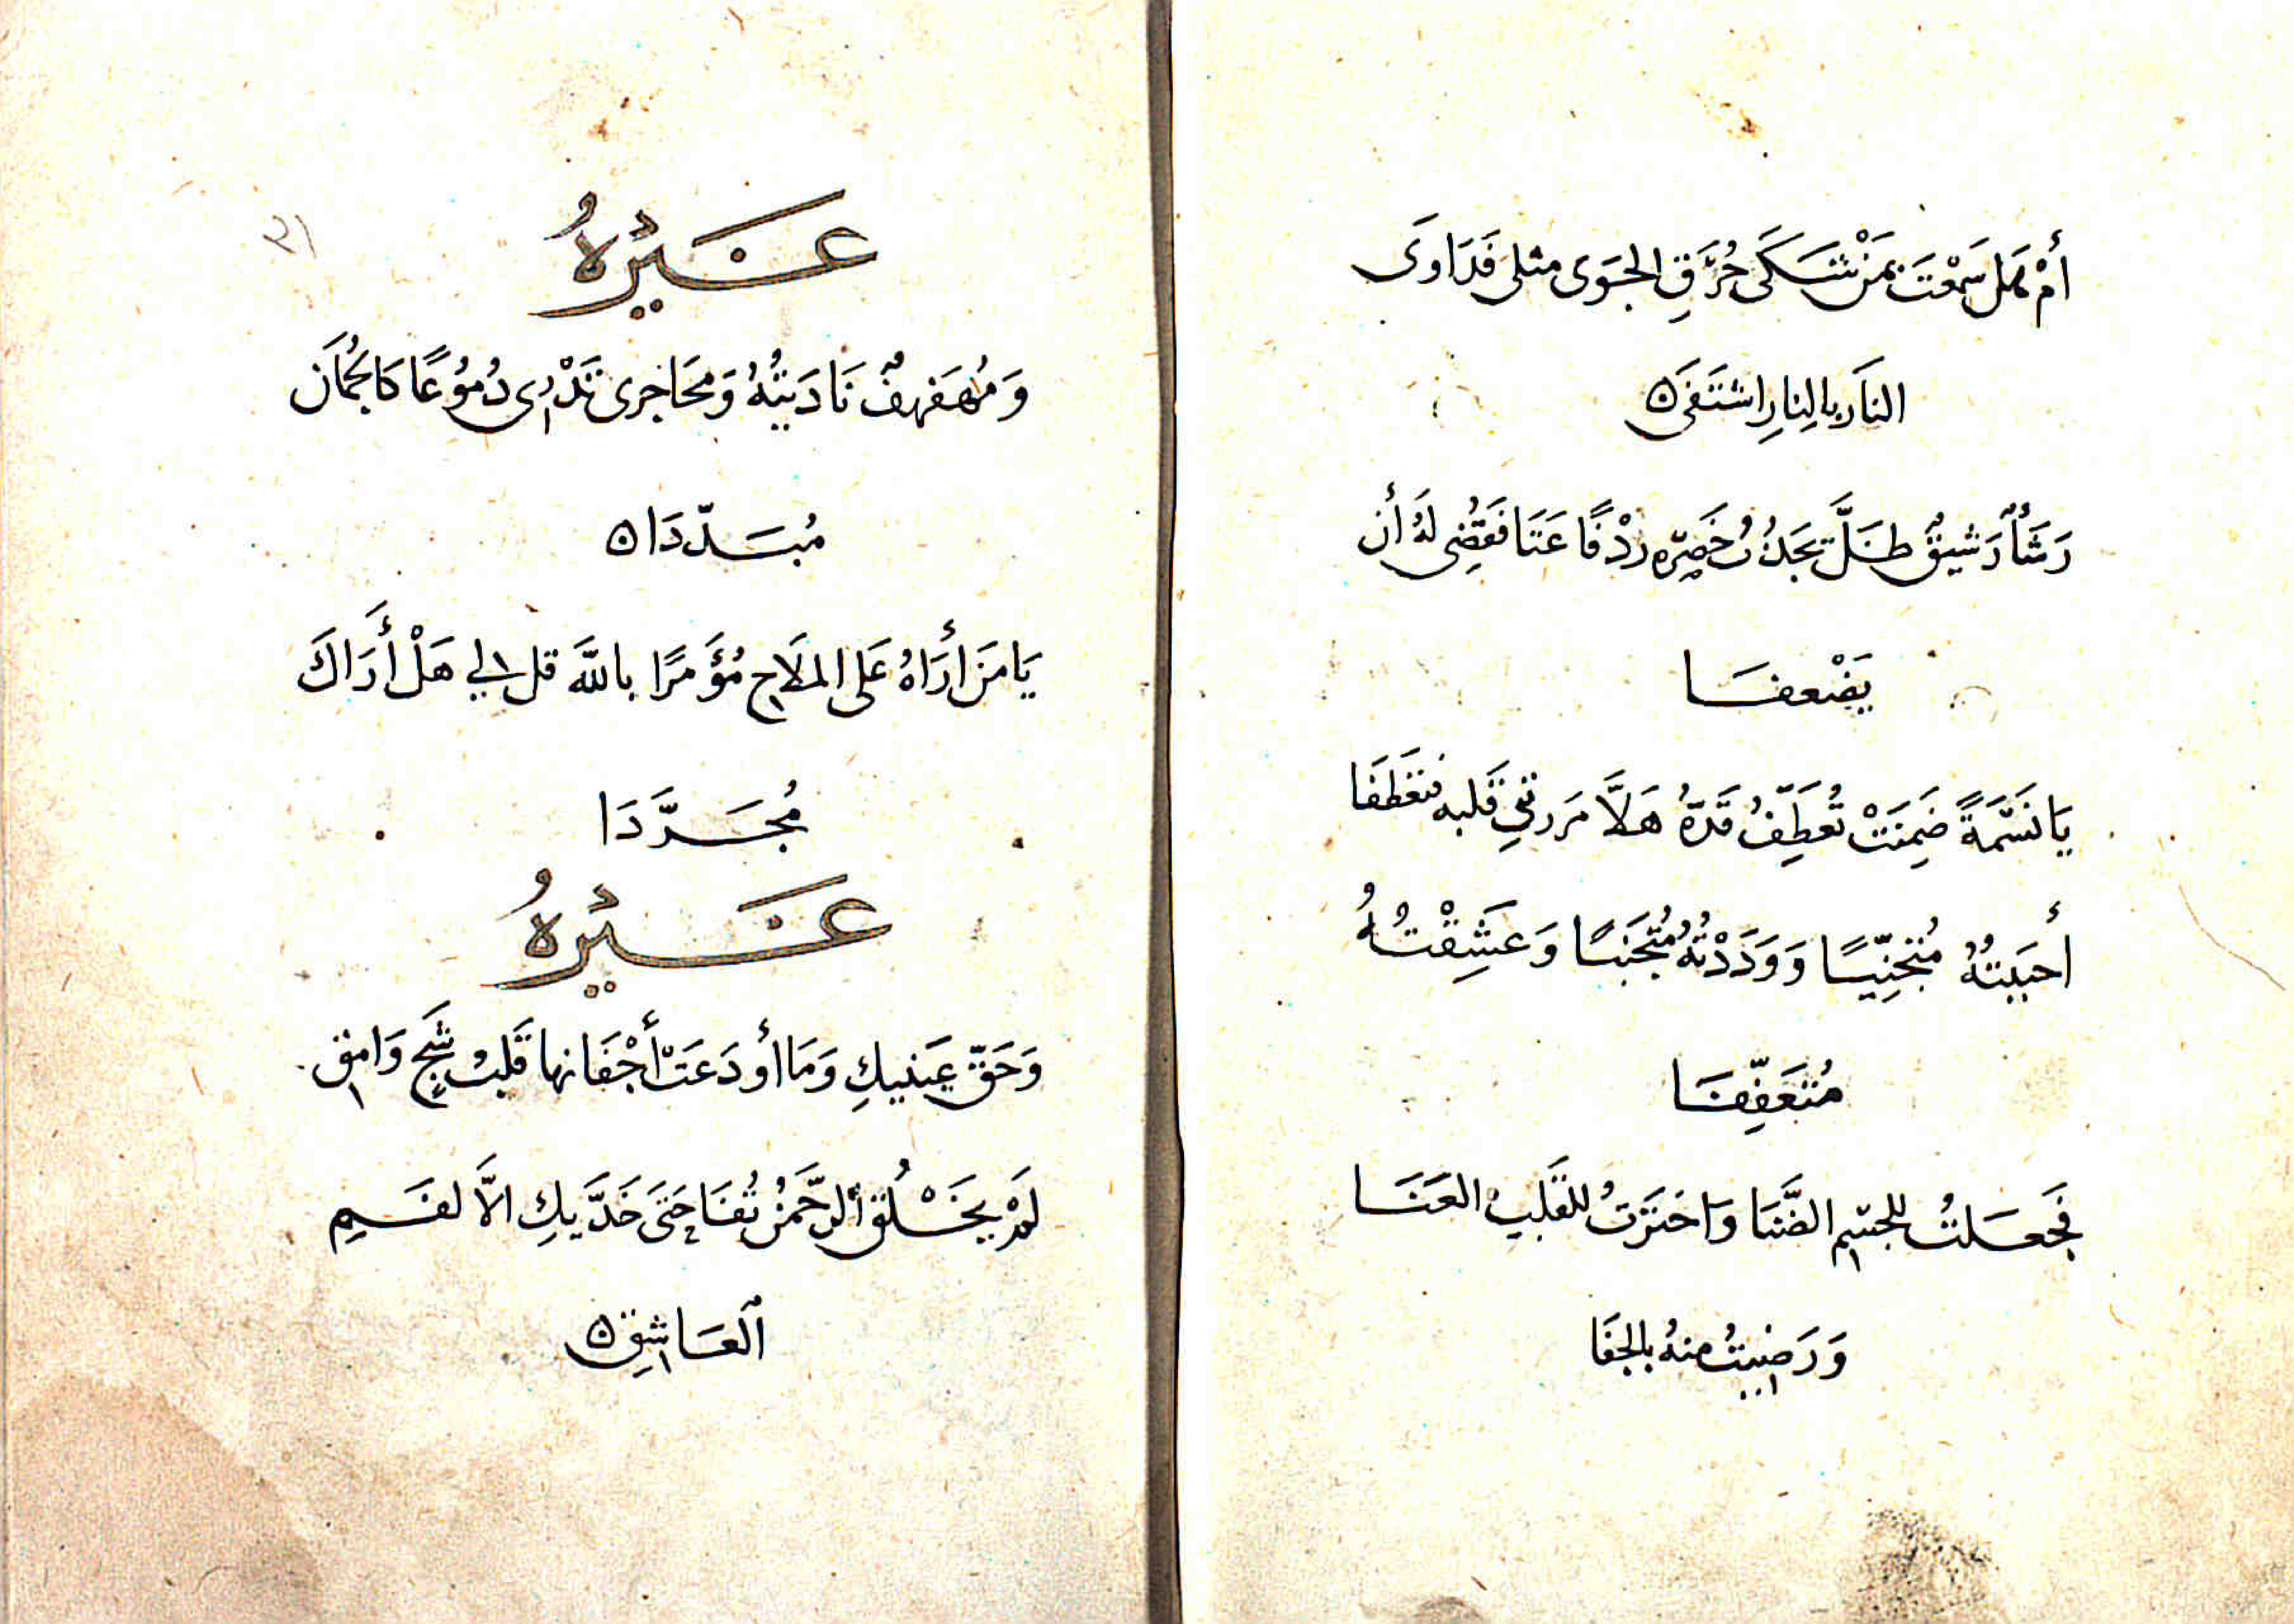 أَمْ هَل سَمِعْتَ بمَنْ شَكَى حُرَقِ الجَوَى مثلى فَدَاوَى
النَار بالنِارِ اشْتَفَى ه
رَشَأٌ رَشيقٌ ظَلَّ يَجذبُ خَصرَه ردْفًا عَتَا فَقَضِى لهُ أن
يَضْعفَا
يَا نَسَمَةً ضَمِنَتْ تُعَطِّفُ قَدّهُ هَلاَّ مَررتِ بقَلبه فتعَطَفَا
أحبَبتُهُ مُتَجنِّيًا وَوَدَدْتُهُ مُتَجَنبًا وَعَشِقْتُهُ
مُتَعَفِّفَا
فَجَعَلتُ للجسْمِ الضَّنَا وَاخترَتُ للقَلبِ العَنَا
وَرَضيتُ منهُ بالجفَا
غَيْرهُ
٢١
وَمُهَفهفٌ نَادَيتُهُ وَمحَاجرى تَذْرِى دُموُعًا كَالجُمَان
مُبَدّدَا ه
يَا مَن أَرَاهُ عَلى الملاَحِ مُؤَمرًا باللَّه قل لي هَلْ أَرَاكَ
مُجَرَّدَا
غَيْرهُ
وَحَقّ عَينيكِ وَمَا أودَعَتْ أَجْفَانها قَلبُ شَجٍ وَامِق
لَمْ يَخْلُق ألرحَّمنُ تُفاحَتَى خَدَّيكِ الاَّ لفَمِ
ألعَاشِقِ ه